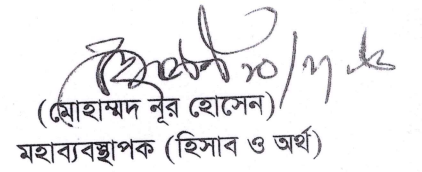 (মোহাম্মদ নূর হোসেন)
মহাব্যবস্থাপক (হিসাব ও অর্থ)